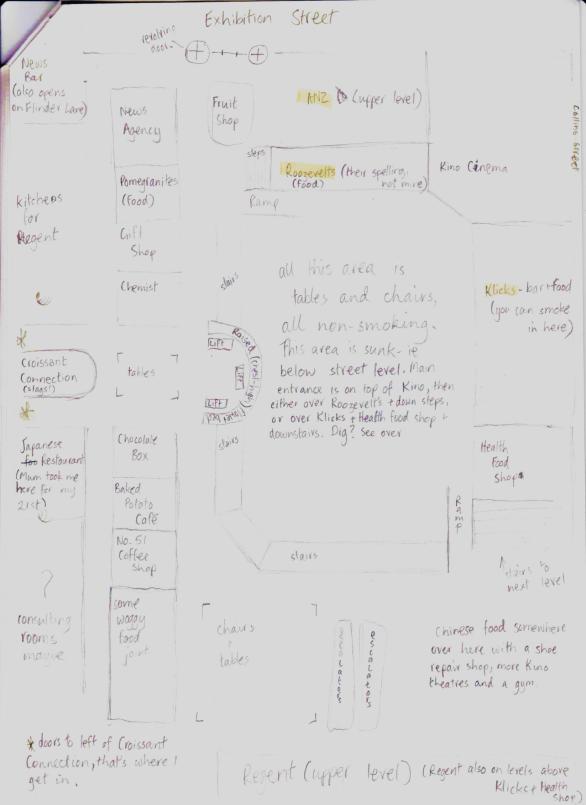 Exhibition Street
revolving
door
News
Bar
(also opens
on Flinder Lane)
News
Agency
Fruit
Shop
ANZ (upper level)
Collins Street
steps
Roozevelts (their spelling,
(food) not mine)
Kino Cinema
Pomegranites
(food)
Ramp
Kitchens
for
Regent
Gift
Shop
Chemist
stairs
all this area is
tables and chairs,
all non-smoking.
This area is sunk-ie
below street level. Main
entrance is on top of Kino, then
either over Roozevelts + down steps,
or over Klicks + Health food shop +
downstairs. Dig? See over
Klicks - bar + food
(you can smoke
in here)
Raised
Lift
Lift
Lift
Croissant
Connection
(slags!)
tables
stairs
Japanese
Restaurant
(Mum took me
here for my
21st)
Chocolate
Box
Baked
Potato
Café
No. 51
Coffee
Shop
Health
Food
Shop
RAMP
stairs
stairs to
next level
?
consulting
rooms
maybe
some
woggy
food
joint
chairs
+
tables
escalators
escalators
Chinese food somewhere
over here with a shoe
repair shop, more Kino
theatres and a gym.
* doors to left of Croissant
Connection, that's where I
get in.
Regent (upper level) (Regent also on levels above
Klicks + Health
shop)